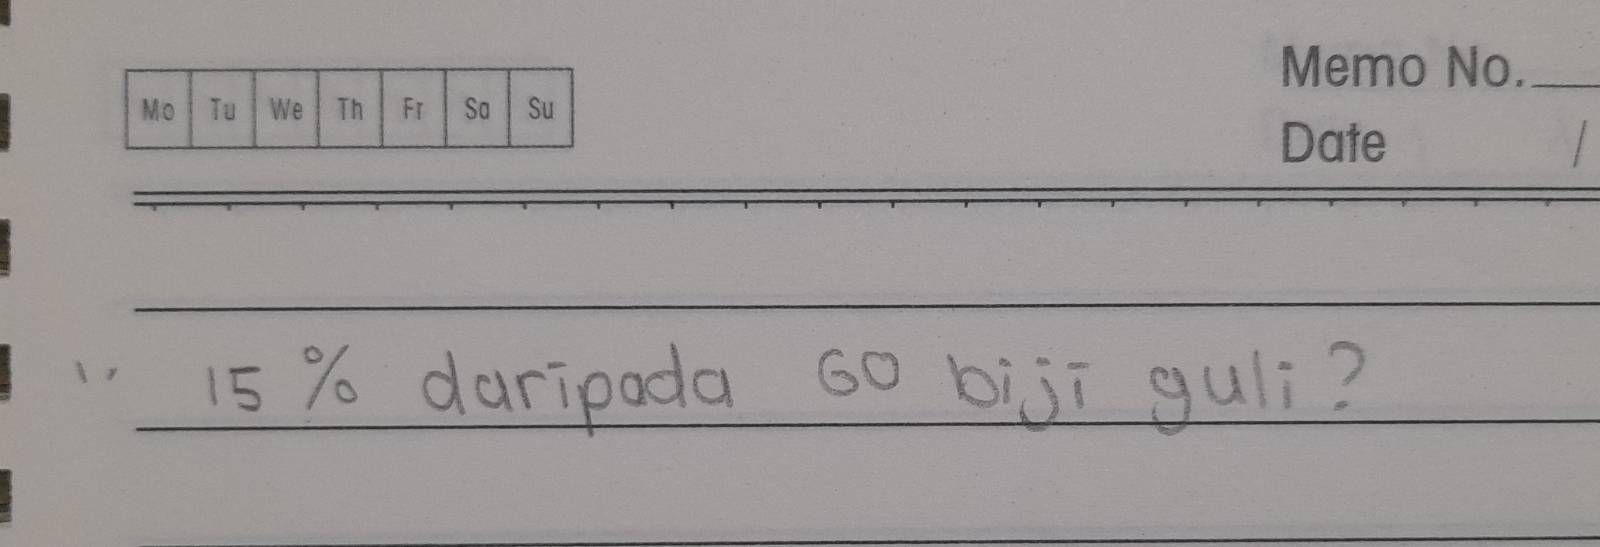 Memo No.
Mo Tu We Th Fr Sa Su
Date /
15 % daripada 60 biji guli?